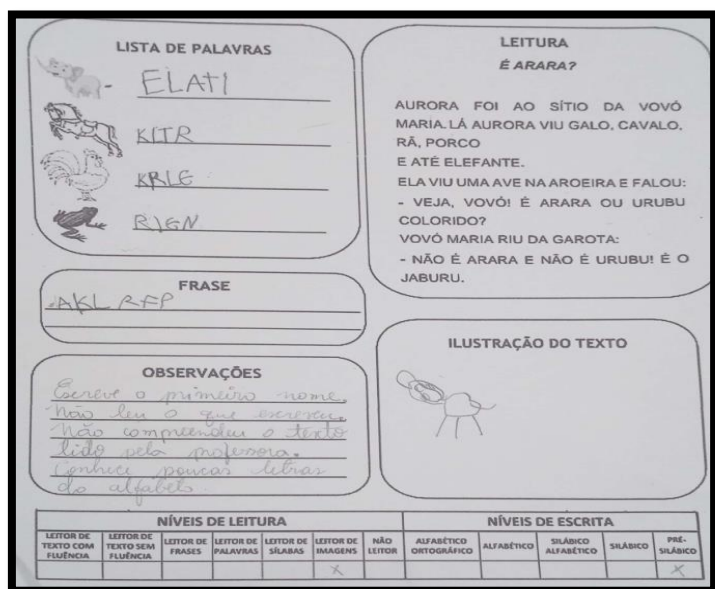 LISTA DE PALAVRAS
ELATI
KITR
KRLE
RIGN
FRASE
AKL RFP
OBSERVAÇÕES
Escreve o primeiro nome.
Não leu o que escreveu.
Não compreendeu o texto
lido pela professora.
Conhece poucas letras
do alfabeto.
LEITURA
É ARARA?
AURORA FOI AO SÍTIO DA VOVÓ
MARIA. LÁ AURORA VIU GALO, CAVALO,
RÃ, PORCO
E ATÉ ELEFANTE.
ELA VIU UMA AVE NA AROEIRA E FALOU:
- VEJA, VOVÓ! É ARARA OU URUBU
COLORIDO?
VOVÓ MARIA RIU DA GAROTA:
- NÃO É ARARA E NÃO É URUBU! É O
JABURU.
ILUSTRAÇÃO DO TEXTO
NÍVEIS DE LEITURA
LEITOR DE TEXTO COM FLUÊNCIA
LEITOR DE TEXTO SEM FLUÊNCIA
LEITOR DE FRASES
LEITOR DE PALAVRAS
LEITOR DE SÍLABAS
LEITOR DE IMAGENS
X
NÃO LEITOR
NÍVEIS DE ESCRITA
ALFABÉTICO ORTOGRÁFICO
ALFABÉTICO
SILÁBICO ALFABÉTICO
SILÁBICO
PRÉ-SILÁBICO
X